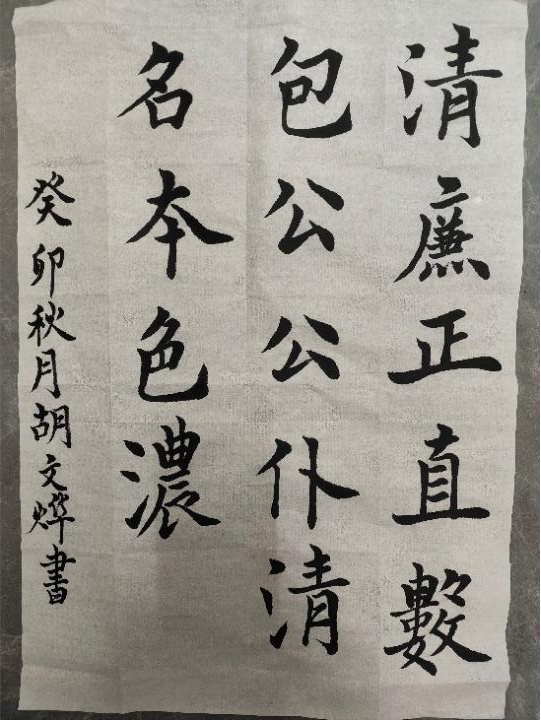 清廉正直數
包公公仆清
名本色濃
癸卯秋月胡文燁書